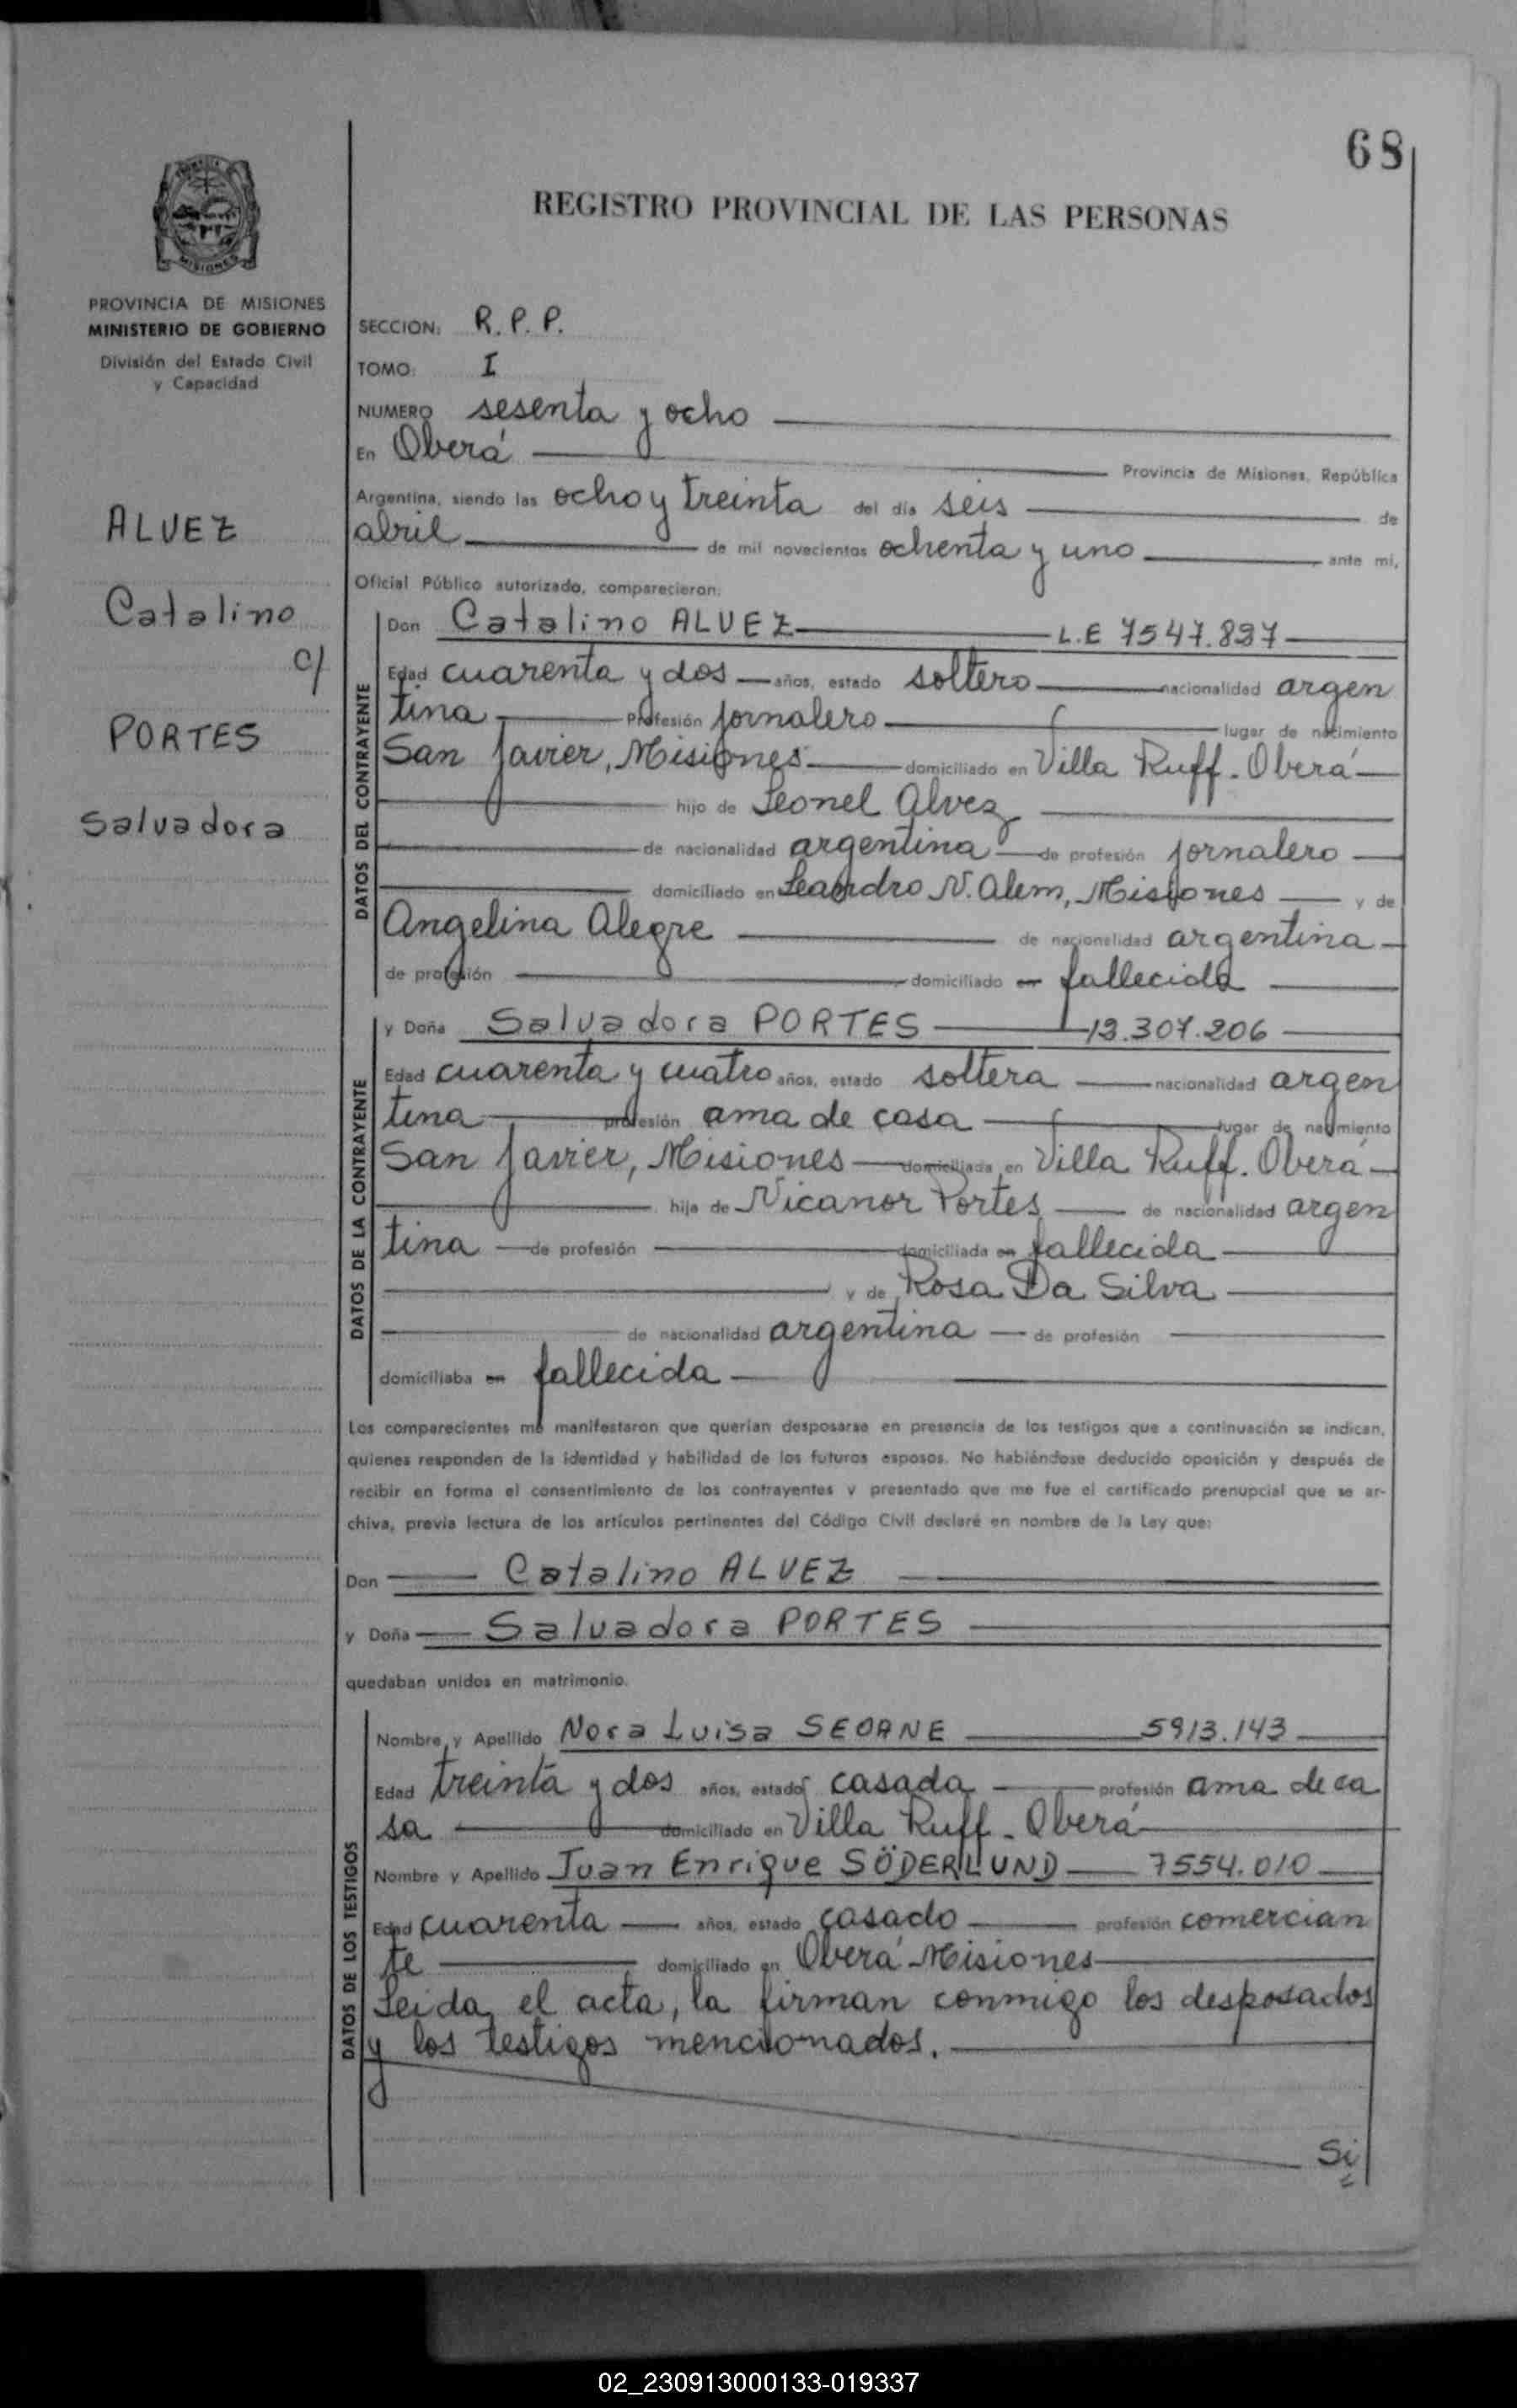 68
REGISTRO PROVINCIAL DE LAS PERSONAS
MISIONES
PROVINCIA DE MISIONES
MINISTERIO DE GOBIERNO
División del Estado Civil
y Capacidad
ALVEZ
Catalino
c/
PORTES
Salvadora
SECCION: R. P. P.
TOMO: I
NUMERO sesenta y ocho
En Oberá Provincia de Misiones, República
Argentina, siendo las ocho y treinta del día seis de
abril de mil novecientos ochenta y uno ante mi,
Oficial Público autorizado, comparecieron:
DATOS DEL CONTRAYENTE
Don Catalino ALVEZ L.E 7547.837
Edad cuarenta y dos años, estado soltero nacionalidad argen
tina Profesión jornalero lugar de nacimiento
San Javier, Misiones domiciliado en Villa Ruff - Oberá
hijo de Leonel Alvez
de nacionalidad argentina de profesión jornalero
domiciliado en Leandro N. Alem, Misiones y de
Angelina Alegre de nacionalidad argentina
de profesión domiciliado en fallecida
DATOS DE LA CONTRAYENTE
y Doña Salvadora PORTES 13.307.206
Edad cuarenta y cuatro años, estado soltera nacionalidad argen
tina profesión ama de casa lugar de nacimiento
San Javier, Misiones domiciliada en Villa Ruff. Oberá
hija de Nicanor Portes de nacionalidad argen
tina de profesión domiciliada en fallecida
y de Rosa Da Silva
de nacionalidad argentina de profesión
domiciliaba en fallecida
Los comparecientes me manifestaron que querían desposarse en presencia de los testigos que a continuación se indican,
quienes responden de la identidad y habilidad de los futuros esposos. No habiéndose deducido oposición y después de
recibir en forma el consentimiento de los contrayentes y presentado que me fue el certificado prenupcial que se ar-
chiva, previa lectura de los artículos pertinentes del Código Civil declaré en nombre de la Ley que:
Don Catalino ALVEZ
y Doña Salvadora PORTES
quedaban unidos en matrimonio.
DATOS DE LOS TESTIGOS
Nombre y Apellido Nora Luisa SEOANE 5913.143
Edad treinta y dos años, estado casada profesión ama de ca
sa domiciliado en Villa Ruff - Oberá
Nombre y Apellido Juan Enrique SÖDERLUND 7554.010
Edad cuarenta años, estado casado profesión comercian
te domiciliado en Oberá - Misiones
Leida el acta, la firman conmigo los desposados
y los testigos mencionados.
Si
02_230913000133-019337